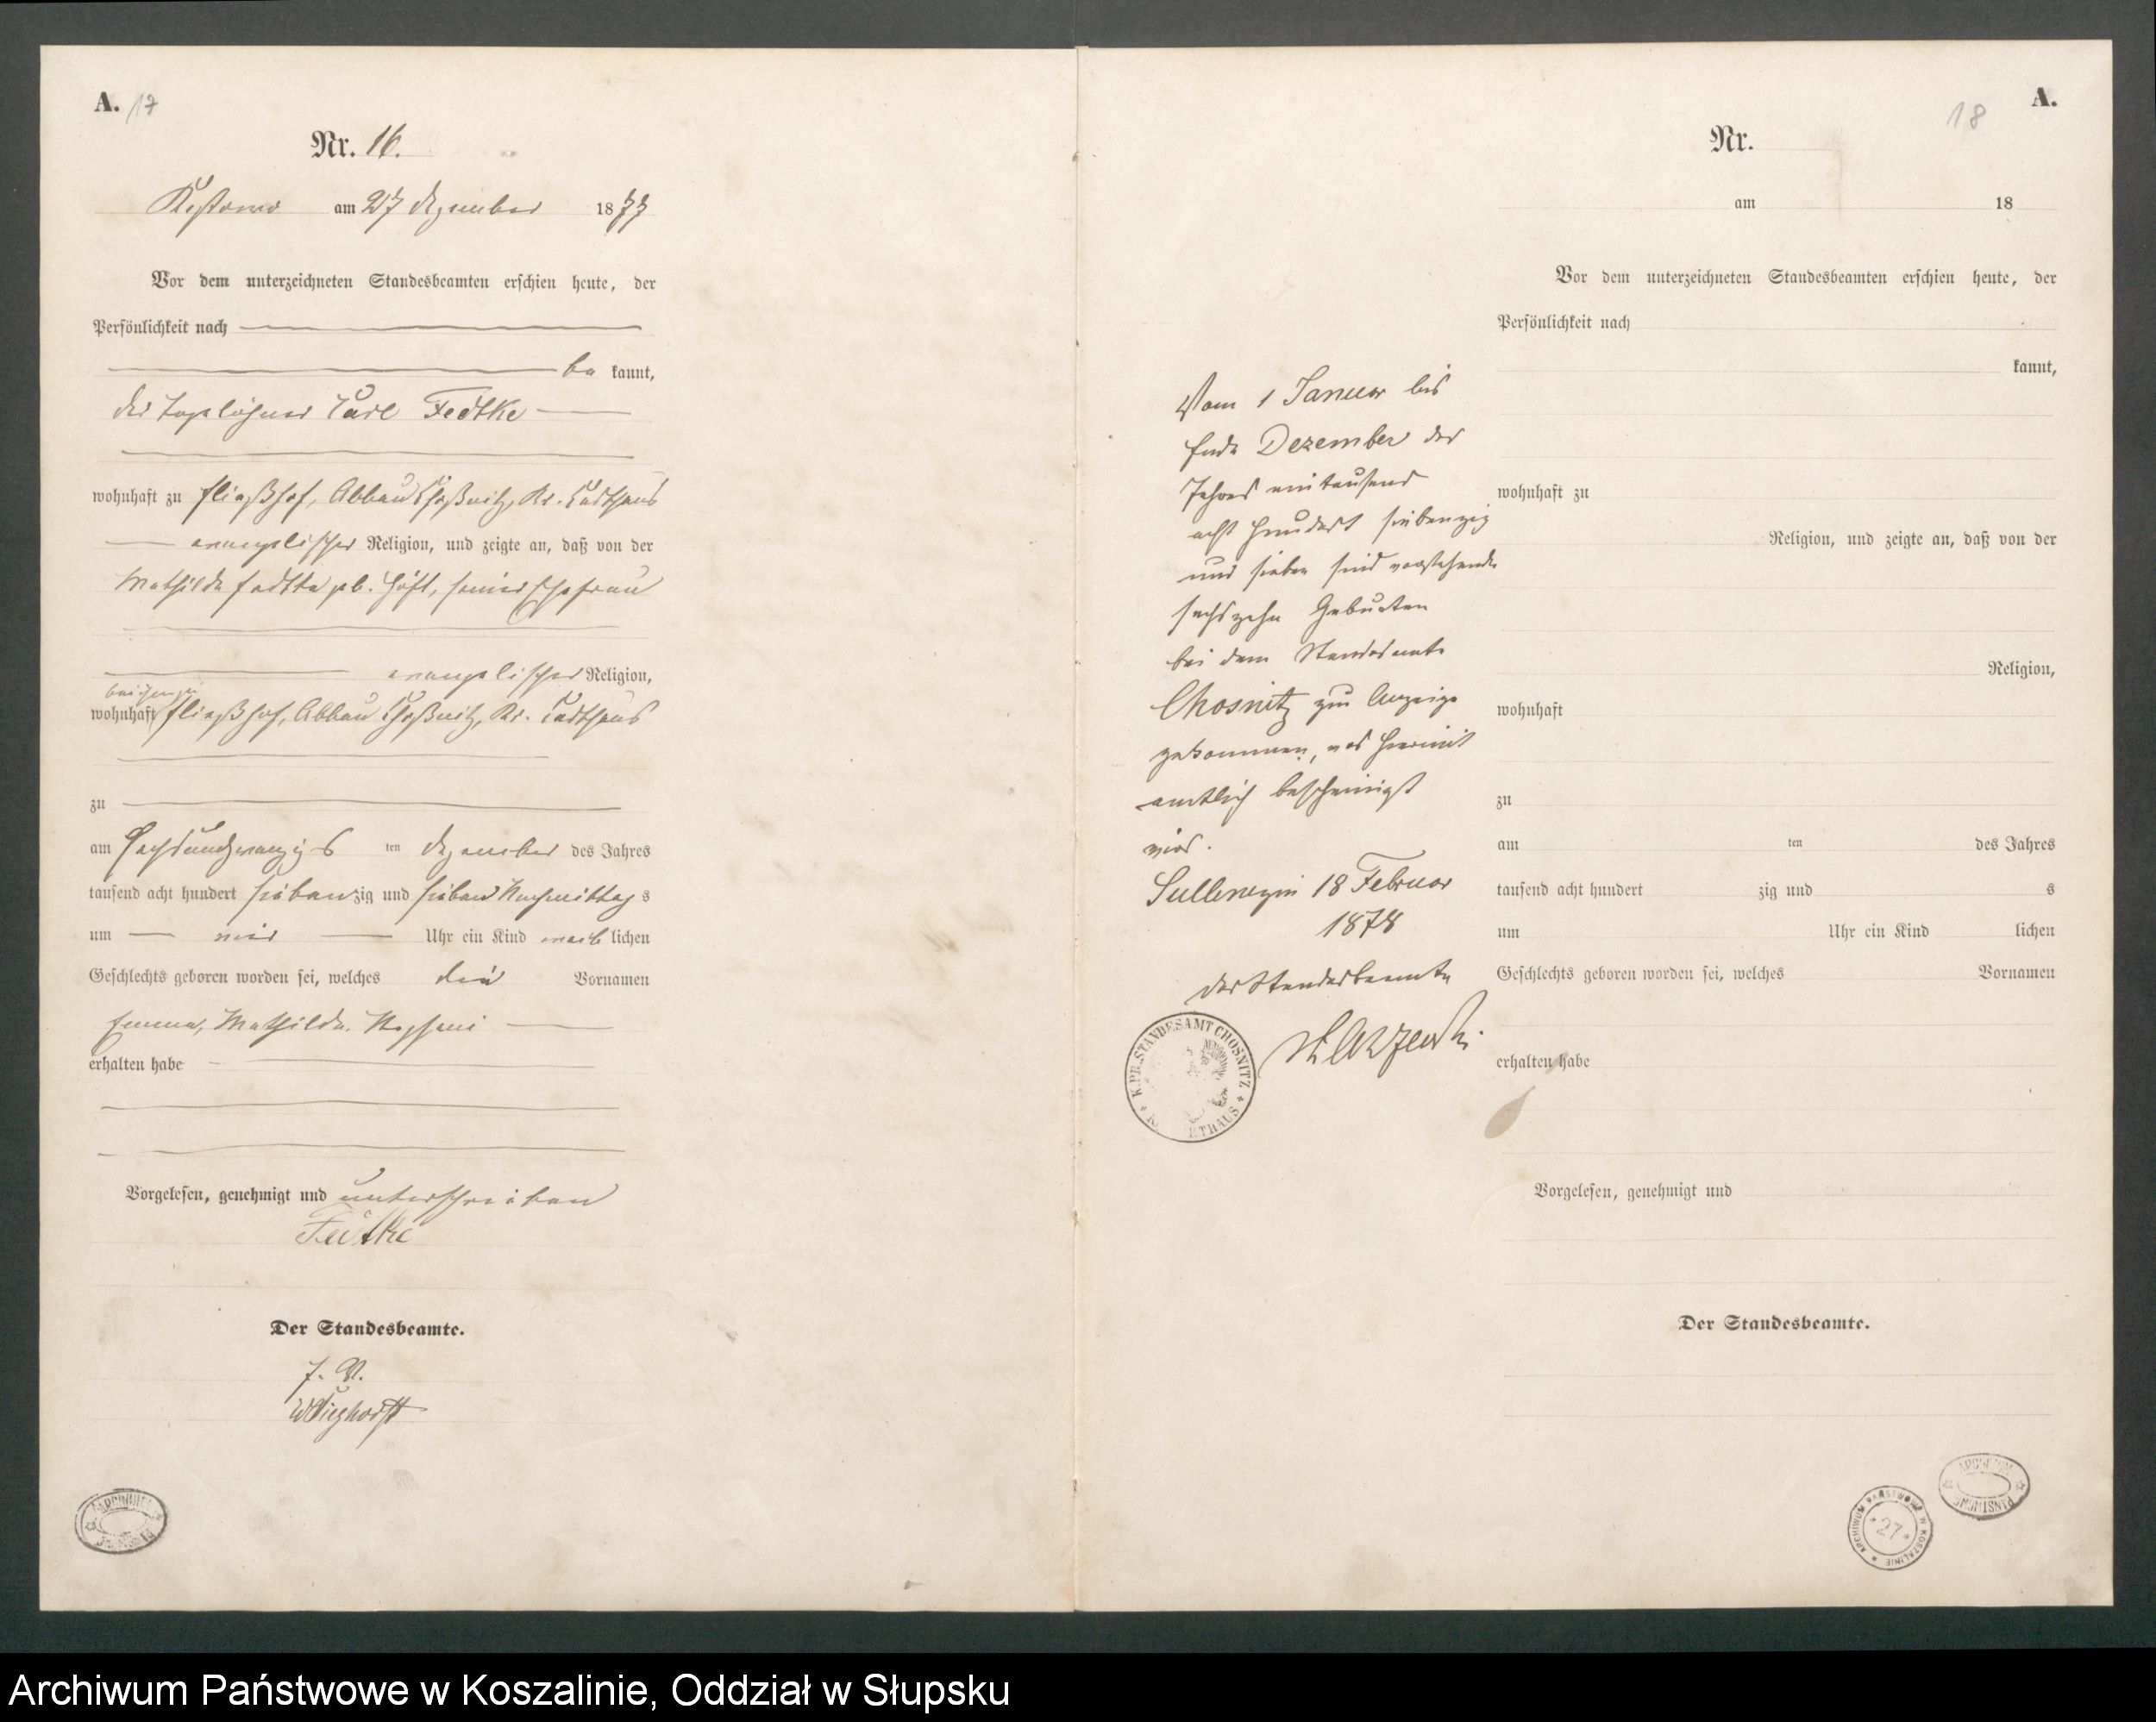 A. 17
Nr. 16.
am 27 Dezember 1877
Vor dem unterzeichneten Standesbeamten erschien heute, der
Persönlichkeit nach
be kannt,
der Tagelöhner Carl Fedtke
wohnhaft zu Fließhof, Abbau Choßnitz, Kr. Carthaus
evangelischer Religion, und zeigte an, daß von der
Mathilde Fedtke geb. seiner Ehefrau
evangelischer Religion,
wohnhaft Fließhof, Abbau Choßnitz, Kr. Carthaus
zu
am Sechsundzwanzigs ten Dezember des Jahres
tausend acht hundert sieben zig und sieben Nachmittag s
um vier Uhr ein Kind weib lichen
Geschlechts geboren worden sei, welches drei Vornamen
Emma, Mathilde,
erhalten habe
Vorgelesen, genehmigt und unterschrieben
Fedtke
Der Standesbeamte.
J. V.
18 A.
Nr.
am 18
Vor dem unterzeichneten Standesbeamten erschien heute, der
Persönlichkeit nach
kannt,
wohnhaft zu
Religion, und zeigte an, daß von der
Religion,
wohnhaft
zu
am ten des Jahres
tausend acht hundert zig und s
um Uhr ein Kind lichen
Geschlechts geboren worden sei, welches Vornamen
erhalten habe
Vorgelesen, genehmigt und
Der Standesbeamte.
Vom 1 Januar bis
Ende Dezember des
Jahres eintausend
acht hundert siebenzig
und sieben sind vorstehende
sechszehn Geburten
bei dem Standesamte
Chosnitz zur Anzeige
gekommen, was hiermit
amtlich bescheinigt
wird.
Sullenczin 18 Februar
1878
Der Standesbeamte
K. PR. STANDESAMT CHOSNITZ
ARCHIWUM PAŃSTWOWE W KOSZALINIE
27
ARCHIWUM PAŃSTWOWE
Archiwum Państwowe w Koszalinie, Oddział w Słupsku